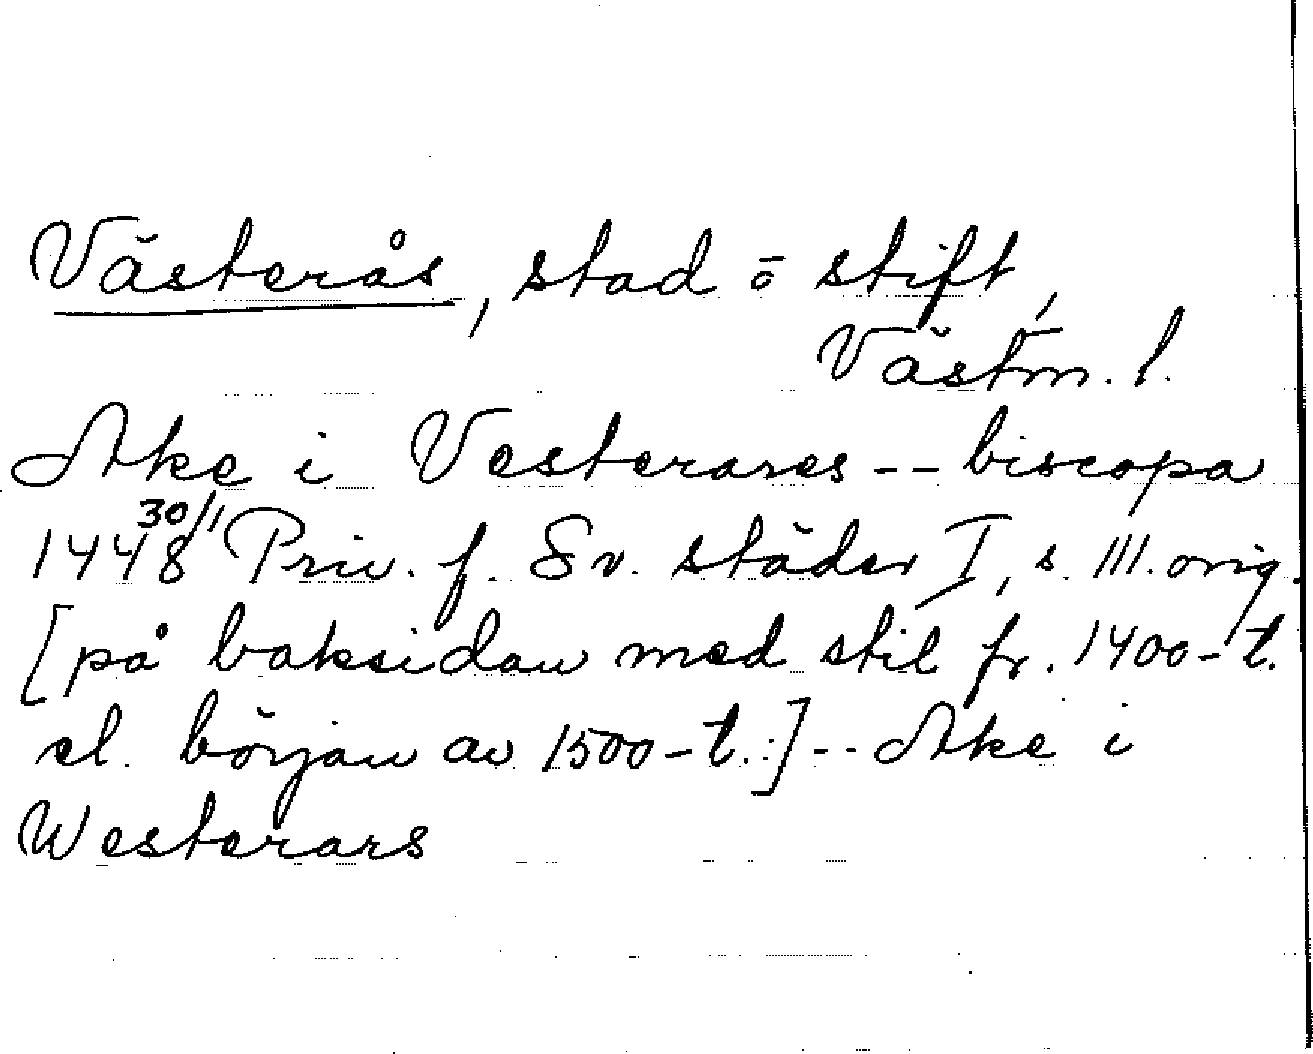 Västerås, stad ō stift,
Västm. l.
Ake i Vesterares -- biscopa
1448 30/1 Priv. f. Sv. städer I, s. 111. orig.
[på baksidan med stil fr. 1400-t.
el. början av 1500-t.:] -- Ake i
Westerars